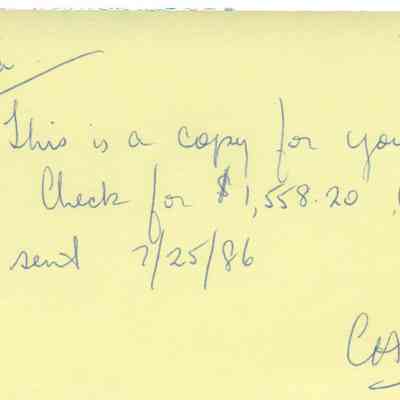 This is a copy for you
Check for $1,558.20
sent 7/25/86